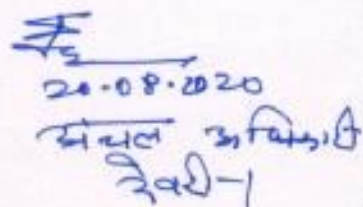 20-08-2020
अंचल अधिकारी
देवरी-1